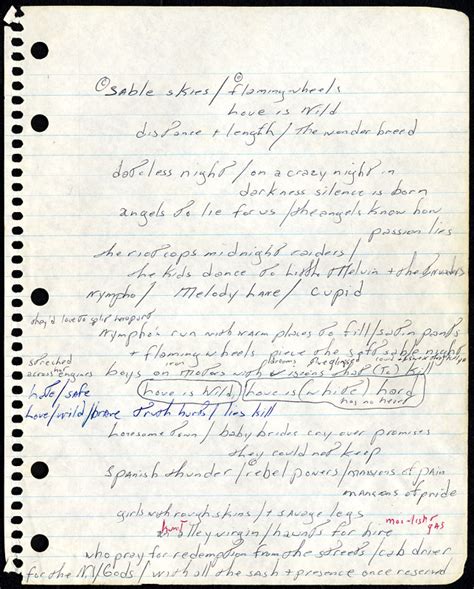 sable skies / flaming wheels
Love is Wild
distance + length / the wonder breed
dotless night / on a crazy night in
darkness silence is born
angels to lie for us / the angels know how
passion lies
the riot cops midnight raiders /
the kids dance to Little Melvin + the Invaders
Nympho / Melody Lane / Cupid
they'd love to split
Nympho's run with warm places to fill / satin pants
+ flaming wheels pierce the soft sable night
stretched
across engines
boys on motors with visions that (To) kill
love / safe
love is Wild, love is (white) hard
has no heirs
Love / wild / brave truth hurts / lies kill
Lonesome Town / baby brides cry over promises
they could not keep
Spanish thunder / rebel powers / mansions of pain
mansions of pride
girls with rough skins / + savage legs
alley virgin / haunts for hire
gas
who pray for redemption from the streets / cab driver
for the NY Gods / with all the sash + presence once reserved